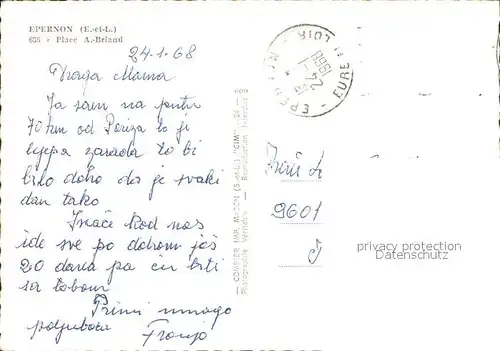 EPERNON (E.-et-L.)
636 - Place A.-Briand
24-1-68
Draga Mama
Ja sam na putu
70 km od Pariza to je
lijepa zarada to bi
bilo dobro da je svaki
dan tako
Inače kod nas
ide sve po dobrom još
20 dana pa ću biti
sa tobom
Primi mnogo
poljubaca
Franjo
— COMBIER IMP. MACON (S.-et-L.) "CIM" —
Photographie Véritable - Reproduction Interdite
EURE-ET-LOIR
1968
Frau
9601
privacy protection
Datenschutz